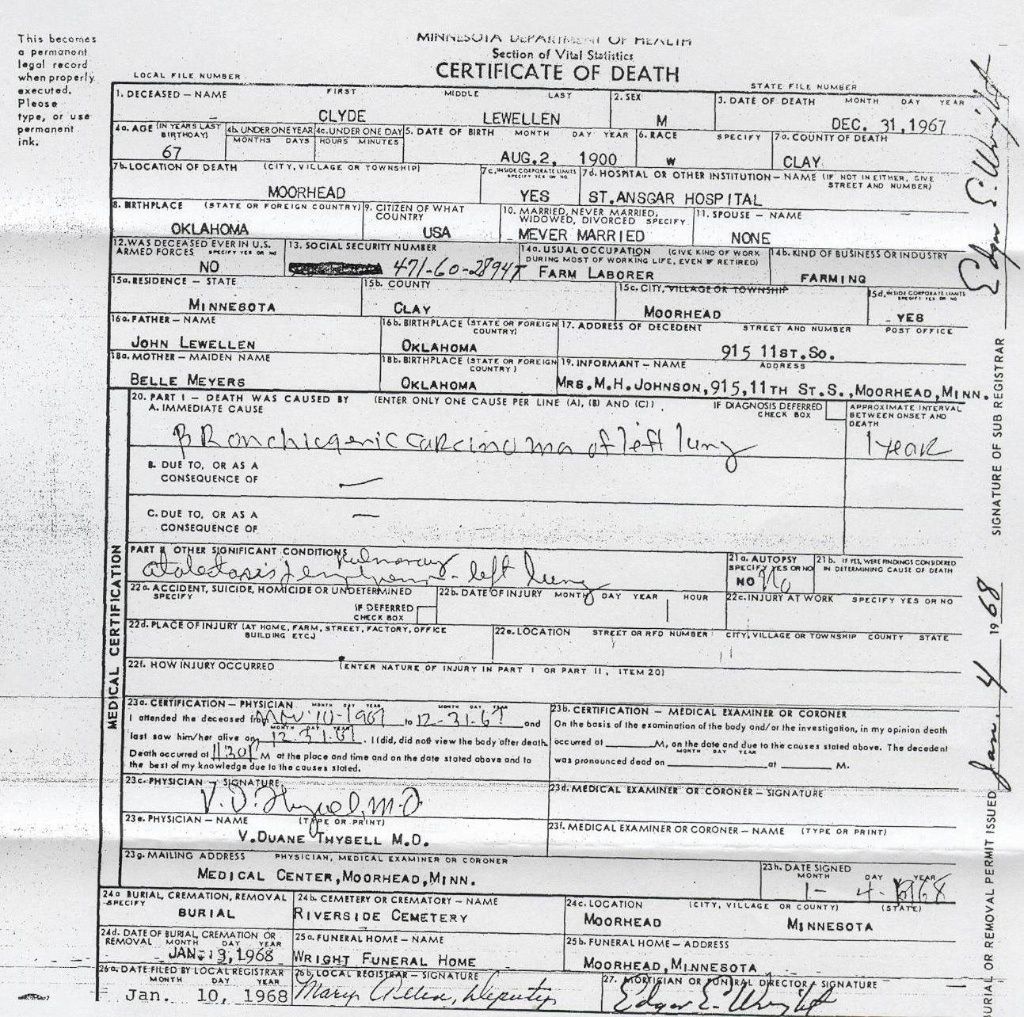 This becomes
a permanent
legal record
when properly
executed.
Please
type, or use
permanent
ink.
MINNESOTA DEPARTMENT OF HEALTH
Section of Vital Statistics
CERTIFICATE OF DEATH
LOCAL FILE NUMBER
STATE FILE NUMBER
1. DECEASED – NAME FIRST MIDDLE LAST
CLYDE LEWELLEN
2. SEX
M
3. DATE OF DEATH MONTH DAY YEAR
DEC. 31, 1967
4a. AGE (IN YEARS LAST BIRTHDAY)
67
4b. UNDER ONE YEAR
MONTHS DAYS
4c. UNDER ONE DAY
HOURS MINUTES
5. DATE OF BIRTH MONTH DAY YEAR
AUG. 2, 1900
6. RACE SPECIFY
W
7a. COUNTY OF DEATH
CLAY
7b. LOCATION OF DEATH (CITY, VILLAGE OR TOWNSHIP)
MOORHEAD
7c. INSIDE CORPORATE LIMITS
SPECIFY YES OR NO
YES
7d. HOSPITAL OR OTHER INSTITUTION – NAME (IF NOT IN EITHER, GIVE
STREET AND NUMBER)
ST. ANSGAR HOSPITAL
8. BIRTHPLACE (STATE OR FOREIGN COUNTRY)
OKLAHOMA
9. CITIZEN OF WHAT
COUNTRY
USA
10. MARRIED, NEVER MARRIED,
WIDOWED, DIVORCED SPECIFY
MEVER MARRIED
11. SPOUSE – NAME
NONE
12. WAS DECEASED EVER IN U.S.
ARMED FORCES SPECIFY YES OR NO
NO
13. SOCIAL SECURITY NUMBER
471-60-2894T
14a. USUAL OCCUPATION (GIVE KIND OF WORK
DURING MOST OF WORKING LIFE, EVEN IF RETIRED)
FARM LABORER
14b. KIND OF BUSINESS OR INDUSTRY
FARMING
15a. RESIDENCE – STATE
MINNESOTA
15b. COUNTY
CLAY
15c. CITY, VILLAGE OR TOWNSHIP
MOORHEAD
15d. INSIDE CORPORATE LIMITS
SPECIFY YES OR NO
YES
16a. FATHER – NAME
JOHN LEWELLEN
16b. BIRTHPLACE (STATE OR FOREIGN
COUNTRY)
OKLAHOMA
17. ADDRESS OF DECEDENT STREET AND NUMBER POST OFFICE
915 11ST. SO.
18a. MOTHER – MAIDEN NAME
BELLE MEYERS
18b. BIRTHPLACE (STATE OR FOREIGN
COUNTRY)
OKLAHOMA
19. INFORMANT – NAME ADDRESS
MRS. M.H. JOHNSON, 915, 11TH ST. S., MOORHEAD, MINN.
MEDICAL CERTIFICATION
20. PART I – DEATH WAS CAUSED BY (ENTER ONLY ONE CAUSE PER LINE (A), (B) AND (C))
A. IMMEDIATE CAUSE
IF DIAGNOSIS DEFERRED
CHECK BOX
APPROXIMATE INTERVAL
BETWEEN ONSET AND
DEATH
Bronchiogenic carcinoma of left lung
1 year
B. DUE TO, OR AS A
CONSEQUENCE OF
—
C. DUE TO, OR AS A
CONSEQUENCE OF
—
PART II OTHER SIGNIFICANT CONDITIONS
Pulmonary
left lung
21a. AUTOPSY
SPECIFY YES OR NO
NO No
21b. IF YES, WERE FINDINGS CONSIDERED
IN DETERMINING CAUSE OF DEATH
22a. ACCIDENT, SUICIDE, HOMICIDE OR UNDETERMINED
SPECIFY
IF DEFERRED
CHECK BOX
22b. DATE OF INJURY MONTH DAY YEAR HOUR
22c. INJURY AT WORK SPECIFY YES OR NO
22d. PLACE OF INJURY (AT HOME, FARM, STREET, FACTORY, OFFICE
BUILDING ETC.)
22e. LOCATION STREET OR RFD NUMBER CITY, VILLAGE OR TOWNSHIP COUNTY STATE
22f. HOW INJURY OCCURRED (ENTER NATURE OF INJURY IN PART I OR PART II, ITEM 20)
23a. CERTIFICATION – PHYSICIAN MONTH DAY YEAR MONTH DAY YEAR
I attended the deceased from Nov. 10-1967 to 12-31-67 and
MONTH DAY YEAR
last saw him/her alive on 12-31-67. I (did, did not view the body after death.
Death occurred at 1130P M at the place and time and on the date stated above and to
the best of my knowledge due to the causes stated.
23b. CERTIFICATION – MEDICAL EXAMINER OR CORONER
On the basis of the examination of the body and/or the investigation, in my opinion death
occurred at M, on the date and due to the causes stated above. The decedent
MONTH DAY YEAR
was pronounced dead on at M.
23c. PHYSICIAN – SIGNATURE
V. D. Thysell, M.D
23d. MEDICAL EXAMINER OR CORONER – SIGNATURE
23e. PHYSICIAN – NAME (TYPE OR PRINT)
V. DUANE THYSELL M.D.
23f. MEDICAL EXAMINER OR CORONER – NAME (TYPE OR PRINT)
23g. MAILING ADDRESS PHYSICIAN, MEDICAL EXAMINER OR CORONER
MEDICAL CENTER, MOORHEAD, MINN.
23h. DATE SIGNED
MONTH DAY YEAR
1- 4-1968
24a BURIAL, CREMATION, REMOVAL
SPECIFY
BURIAL
24b. CEMETERY OR CREMATORY – NAME
RIVERSIDE CEMETERY
24c. LOCATION (CITY, VILLAGE OR COUNTY) (STATE)
MOORHEAD MINNESOTA
24d. DATE OF BURIAL, CREMATION OR
REMOVAL MONTH DAY YEAR
JAN. 3, 1968
25a. FUNERAL HOME – NAME
WRIGHT FUNERAL HOME
25b. FUNERAL HOME – ADDRESS
MOORHEAD, MINNESOTA
26a. DATE FILED BY LOCAL REGISTRAR
MONTH DAY YEAR
Jan. 10, 1968
26b. LOCAL REGISTRAR – SIGNATURE
Mary Allen, Deputy
27. MORTICIAN OR FUNERAL DIRECTOR – SIGNATURE
Edgar E. Wright
BURIAL OR REMOVAL PERMIT ISSUED Jan. 4 1968 SIGNATURE OF SUB REGISTRAR Edgar E. Wright